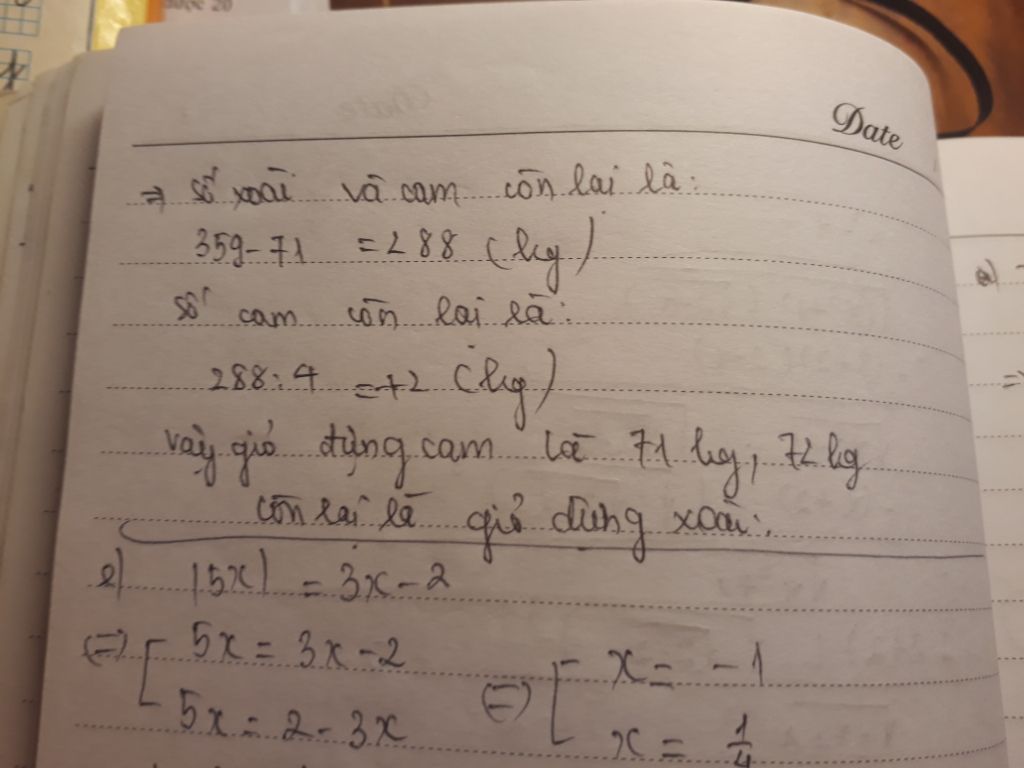 Date
=> số xoài và cam còn lại là:
359 - 71 = 288 (kg)
số cam còn lại là:
288 : 4 = 72 (kg)
vậy giỏ đựng cam là 71 kg, 72 kg
còn lại là giỏ đựng xoài.
e) |5x| = 3x - 2
(=) [ 5x = 3x - 2 (=) [ x = -1
5x = 2 - 3x x = 1/4
a)
=>